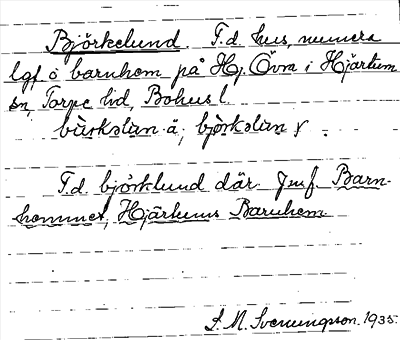 Björkelund. F.d. hus, numera
lgf o barnhem på Hj. Övra i Hjärtum
sn, Torpe hd, Bohusl.
bùrkəlun ä; bjòrkəlun y.
F.d. björklund där. Jmf. Barn-
hemmet, Hjärtums Barnhem.
S. M. Svenungsson. 1935.